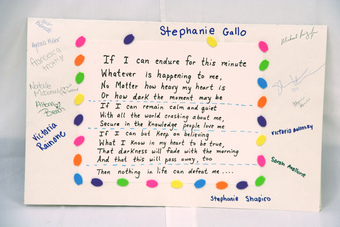 Stephanie Gallo
If I can endure for this minute
Whatever is happening to me,
No Matter how heavy my heart is
Or how dark the moment may be
If I can remain calm and quiet
With all the world crashing about me,
Secure in the Knowledge people love me
If I can but keep on believing
What I know in my heart to be true,
That darkness will fade with the morning
And that this will pass away, too
Then nothing in life can defeat me ....
Victoria
Stephanie Shapiro